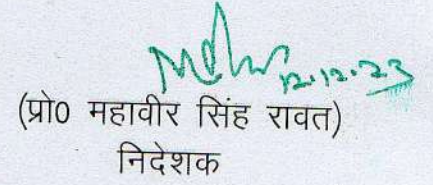 12.12.23
(प्रो0 महावीर सिंह रावत)
निदेशक